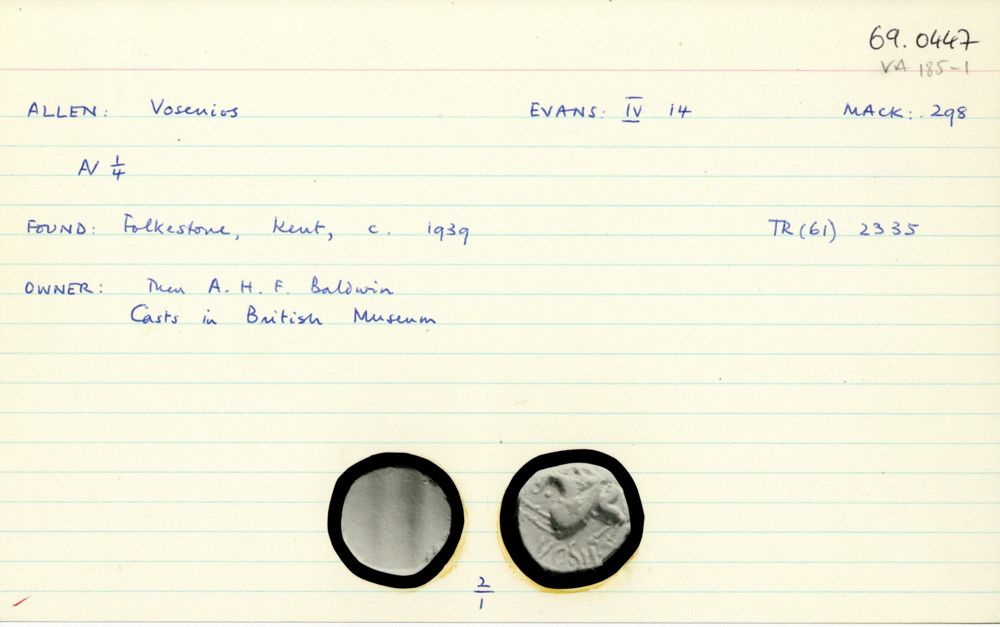 69.0447
VA 185-1
ALLEN: Vosenios EVANS: IV 14 MACK: 298
AV 1/4
FOUND: Folkestone, Kent, c. 1939 TR (61) 2335
OWNER: Then A. H. F. Baldwin
Casts in British Museum
2/1